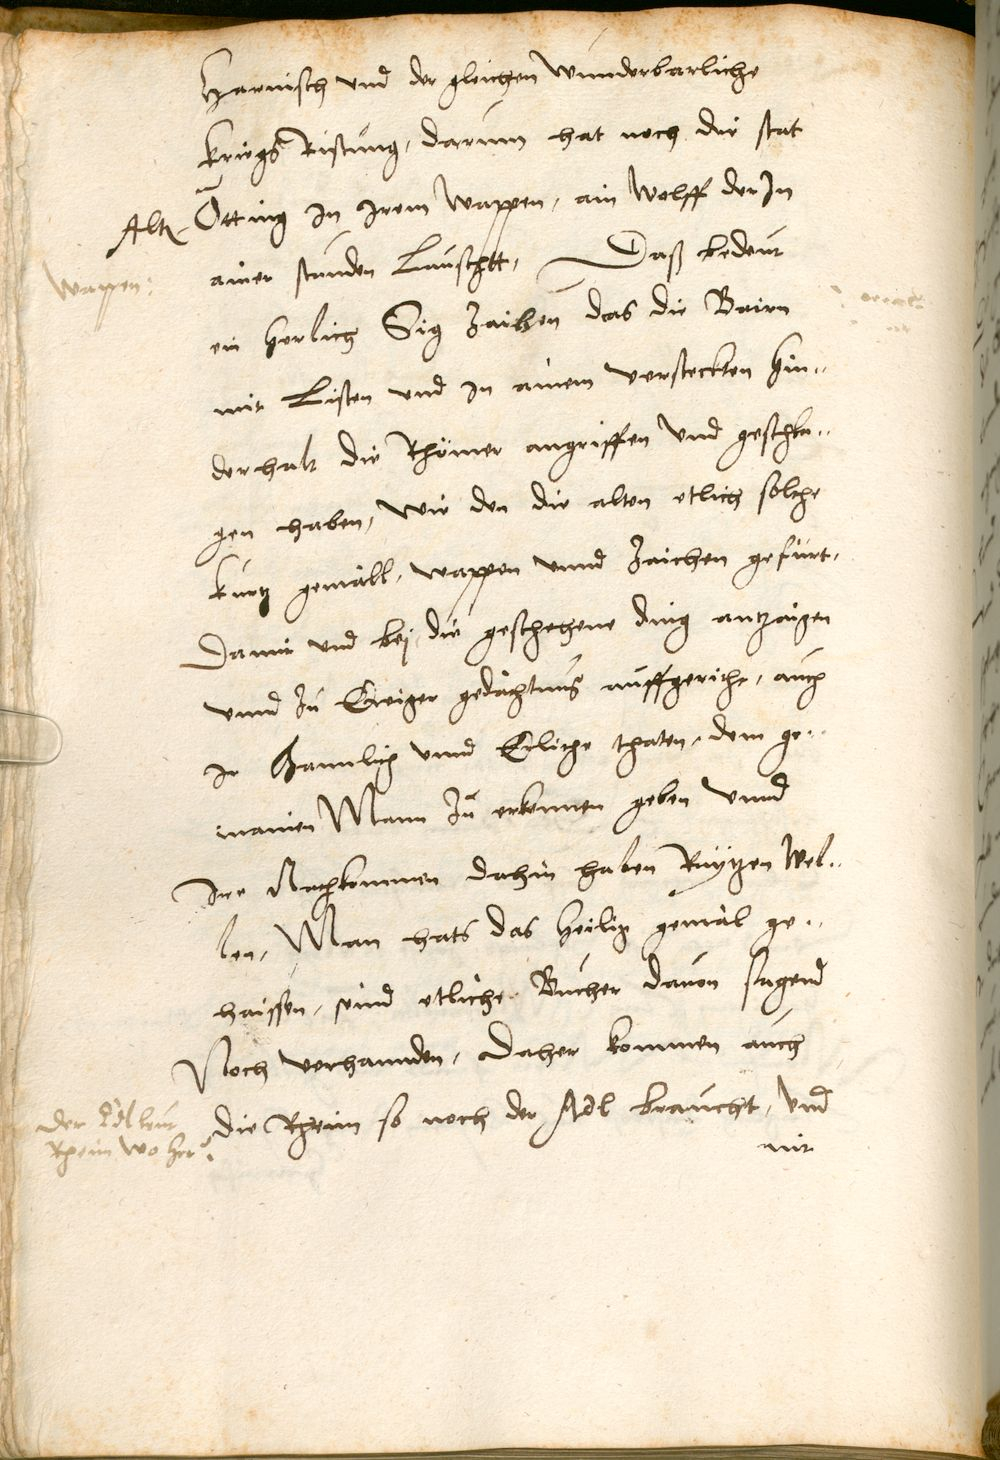 Harnisch vnd der gleichen wunderbarliche
kriegs Ristung, darumm hat noch die stat
Alt Otting in irem Wappen, ain Wolff der In
Wappen:
ainer stauden Lauschtt, Daß bedeut
ein herlich Sig Zaichen das die Bairn
mit Listen vnd in ainem versteckten hin-
derhalt die Rhömer angriffen vnd geschla-
gen haben, Wie den die alten etlich solche
kurtz gemäll, wappen vnnd Zaichen gefürt,
Damit vnd bej die geschehene ding antzaigen
vnnd zu Ewiger gedächtnus auffgericht, auch
ir hamlich vnnd Erliche thaten, dem ge-
mainen Mann zu erkennen geben vnnd
Ire Nachkommen dahin haben Raytzen wel-
len, Man hats das heilig gemäl ge-
haissen, seind etliche Bücher dauon sagend
Noch verhannden, Daher kommen auch
die Rheim so noch der Adl braucht, vnd
Der Adlleut
Rheim wo her?
mit